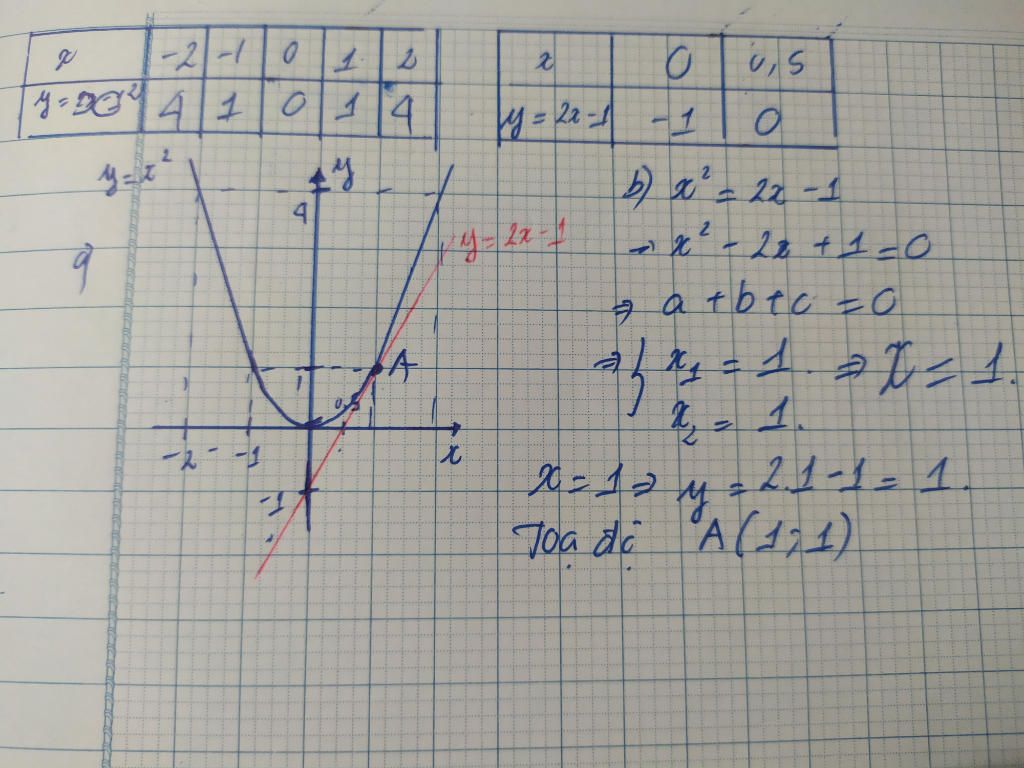 x -2 -1 0 1 2
y=x² 4 1 0 1 4
x 0 0,5
y=2x-1 -1 0
y=x²
y
4
y=2x-1
1
A
0,5
-2 -1
x
-1
b) x² = 2x - 1
→ x² - 2x + 1 = 0
⇒ a + b + c = 0
⇒ { x₁ = 1. ⇒ x = 1.
x₂ = 1.
x = 1 ⇒ y = 2.1 - 1 = 1.
Toạ độ A(1;1)